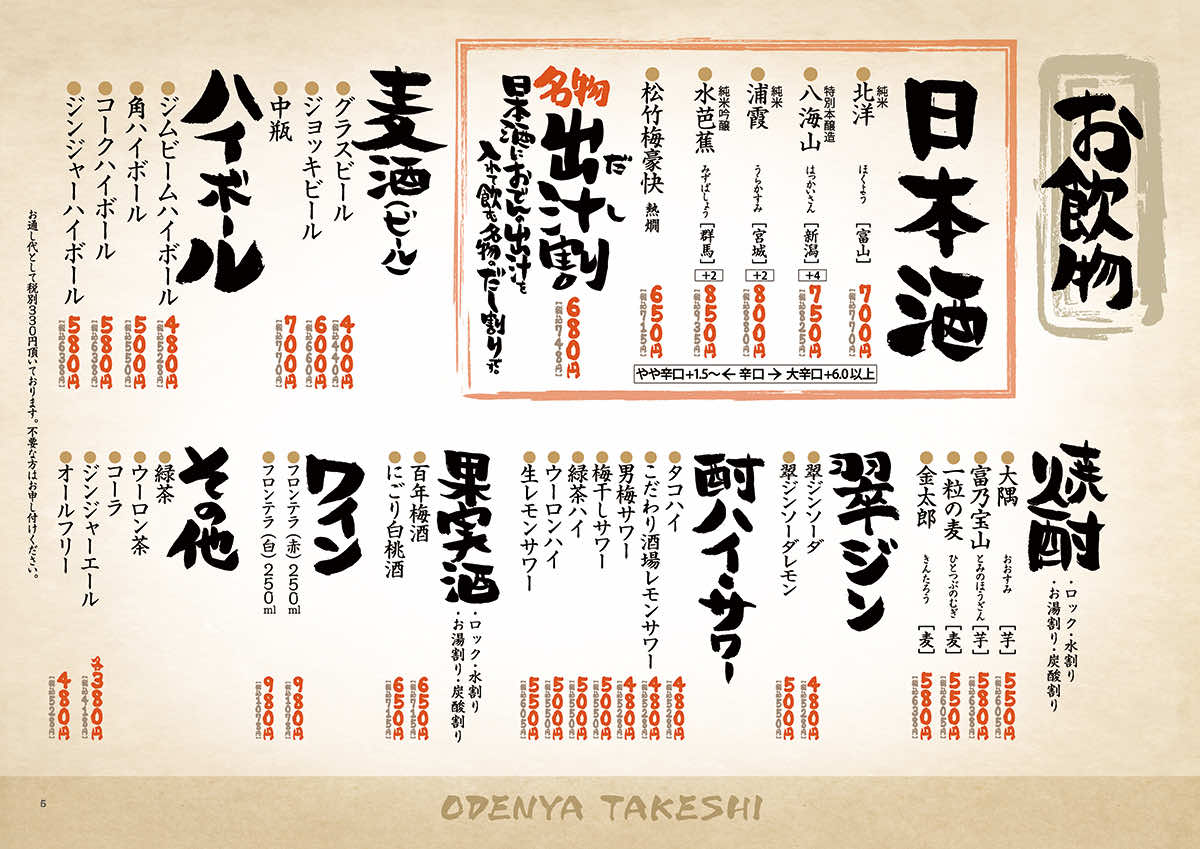 お飲物
日本酒
純米
北洋 ほくよう [富山] 700円
[税込770円]
特別本醸造
八海山 はっかいさん [新潟] +4 750円
[税込825円]
純米
浦霞 うらかすみ [宮城] +2 800円
[税込880円]
純米吟醸
水芭蕉 みずばしょう [群馬] +2 850円
[税込935円]
松竹梅豪快 熱燗 650円
[税込715円]
やや辛口+1.5〜← 辛口 → 大辛口+6.0以上
名物
出汁割
だし
680円
[税込748円]
日本酒におでんの出汁を
入れて飲む名物のだし割りです。
麦酒(ビール)
グラスビール 400円
[税込440円]
ジョッキビール 600円
[税込660円]
中瓶 700円
[税込770円]
ハイボール
ジムビームハイボール 480円
[税込528円]
角ハイボール 500円
[税込550円]
コークハイボール 580円
[税込638円]
ジンジャーハイボール 580円
[税込638円]
焼酎
・ロック・水割り
・お湯割り・炭酸割り
大隅 おおすみ [芋] 550円
[税込605円]
富乃宝山 とみのほうざん [芋] 580円
[税込638円]
一粒の麦 ひとつぶのむぎ [麦] 550円
[税込605円]
金太郎 きんたろう [麦] 580円
[税込638円]
翠ジン
翠ジンソーダ 480円
[税込528円]
翠ジンソーダレモン 500円
[税込550円]
酎ハイ・サワー
タコハイ 480円
[税込528円]
こだわり酒場レモンサワー 480円
[税込528円]
男梅サワー 480円
[税込528円]
梅干しサワー 500円
[税込550円]
緑茶ハイ 500円
[税込550円]
ウーロンハイ 500円
[税込550円]
生レモンサワー 550円
[税込605円]
果実酒
・ロック・水割り
・お湯割り・炭酸割り
百年梅酒 650円
[税込715円]
にごり白桃酒 650円
[税込715円]
ワイン
フロンテラ(赤)250ml 980円
[税込1078円]
フロンテラ(白)250ml 980円
[税込1078円]
その他
緑茶
ウーロン茶
コーラ
ジンジャーエール 各380円
[税込418円]
オールフリー 480円
[税込528円]
お通し代として税別330円頂いております。不要な方はお申し付けください。
5
ODENYA TAKESHI